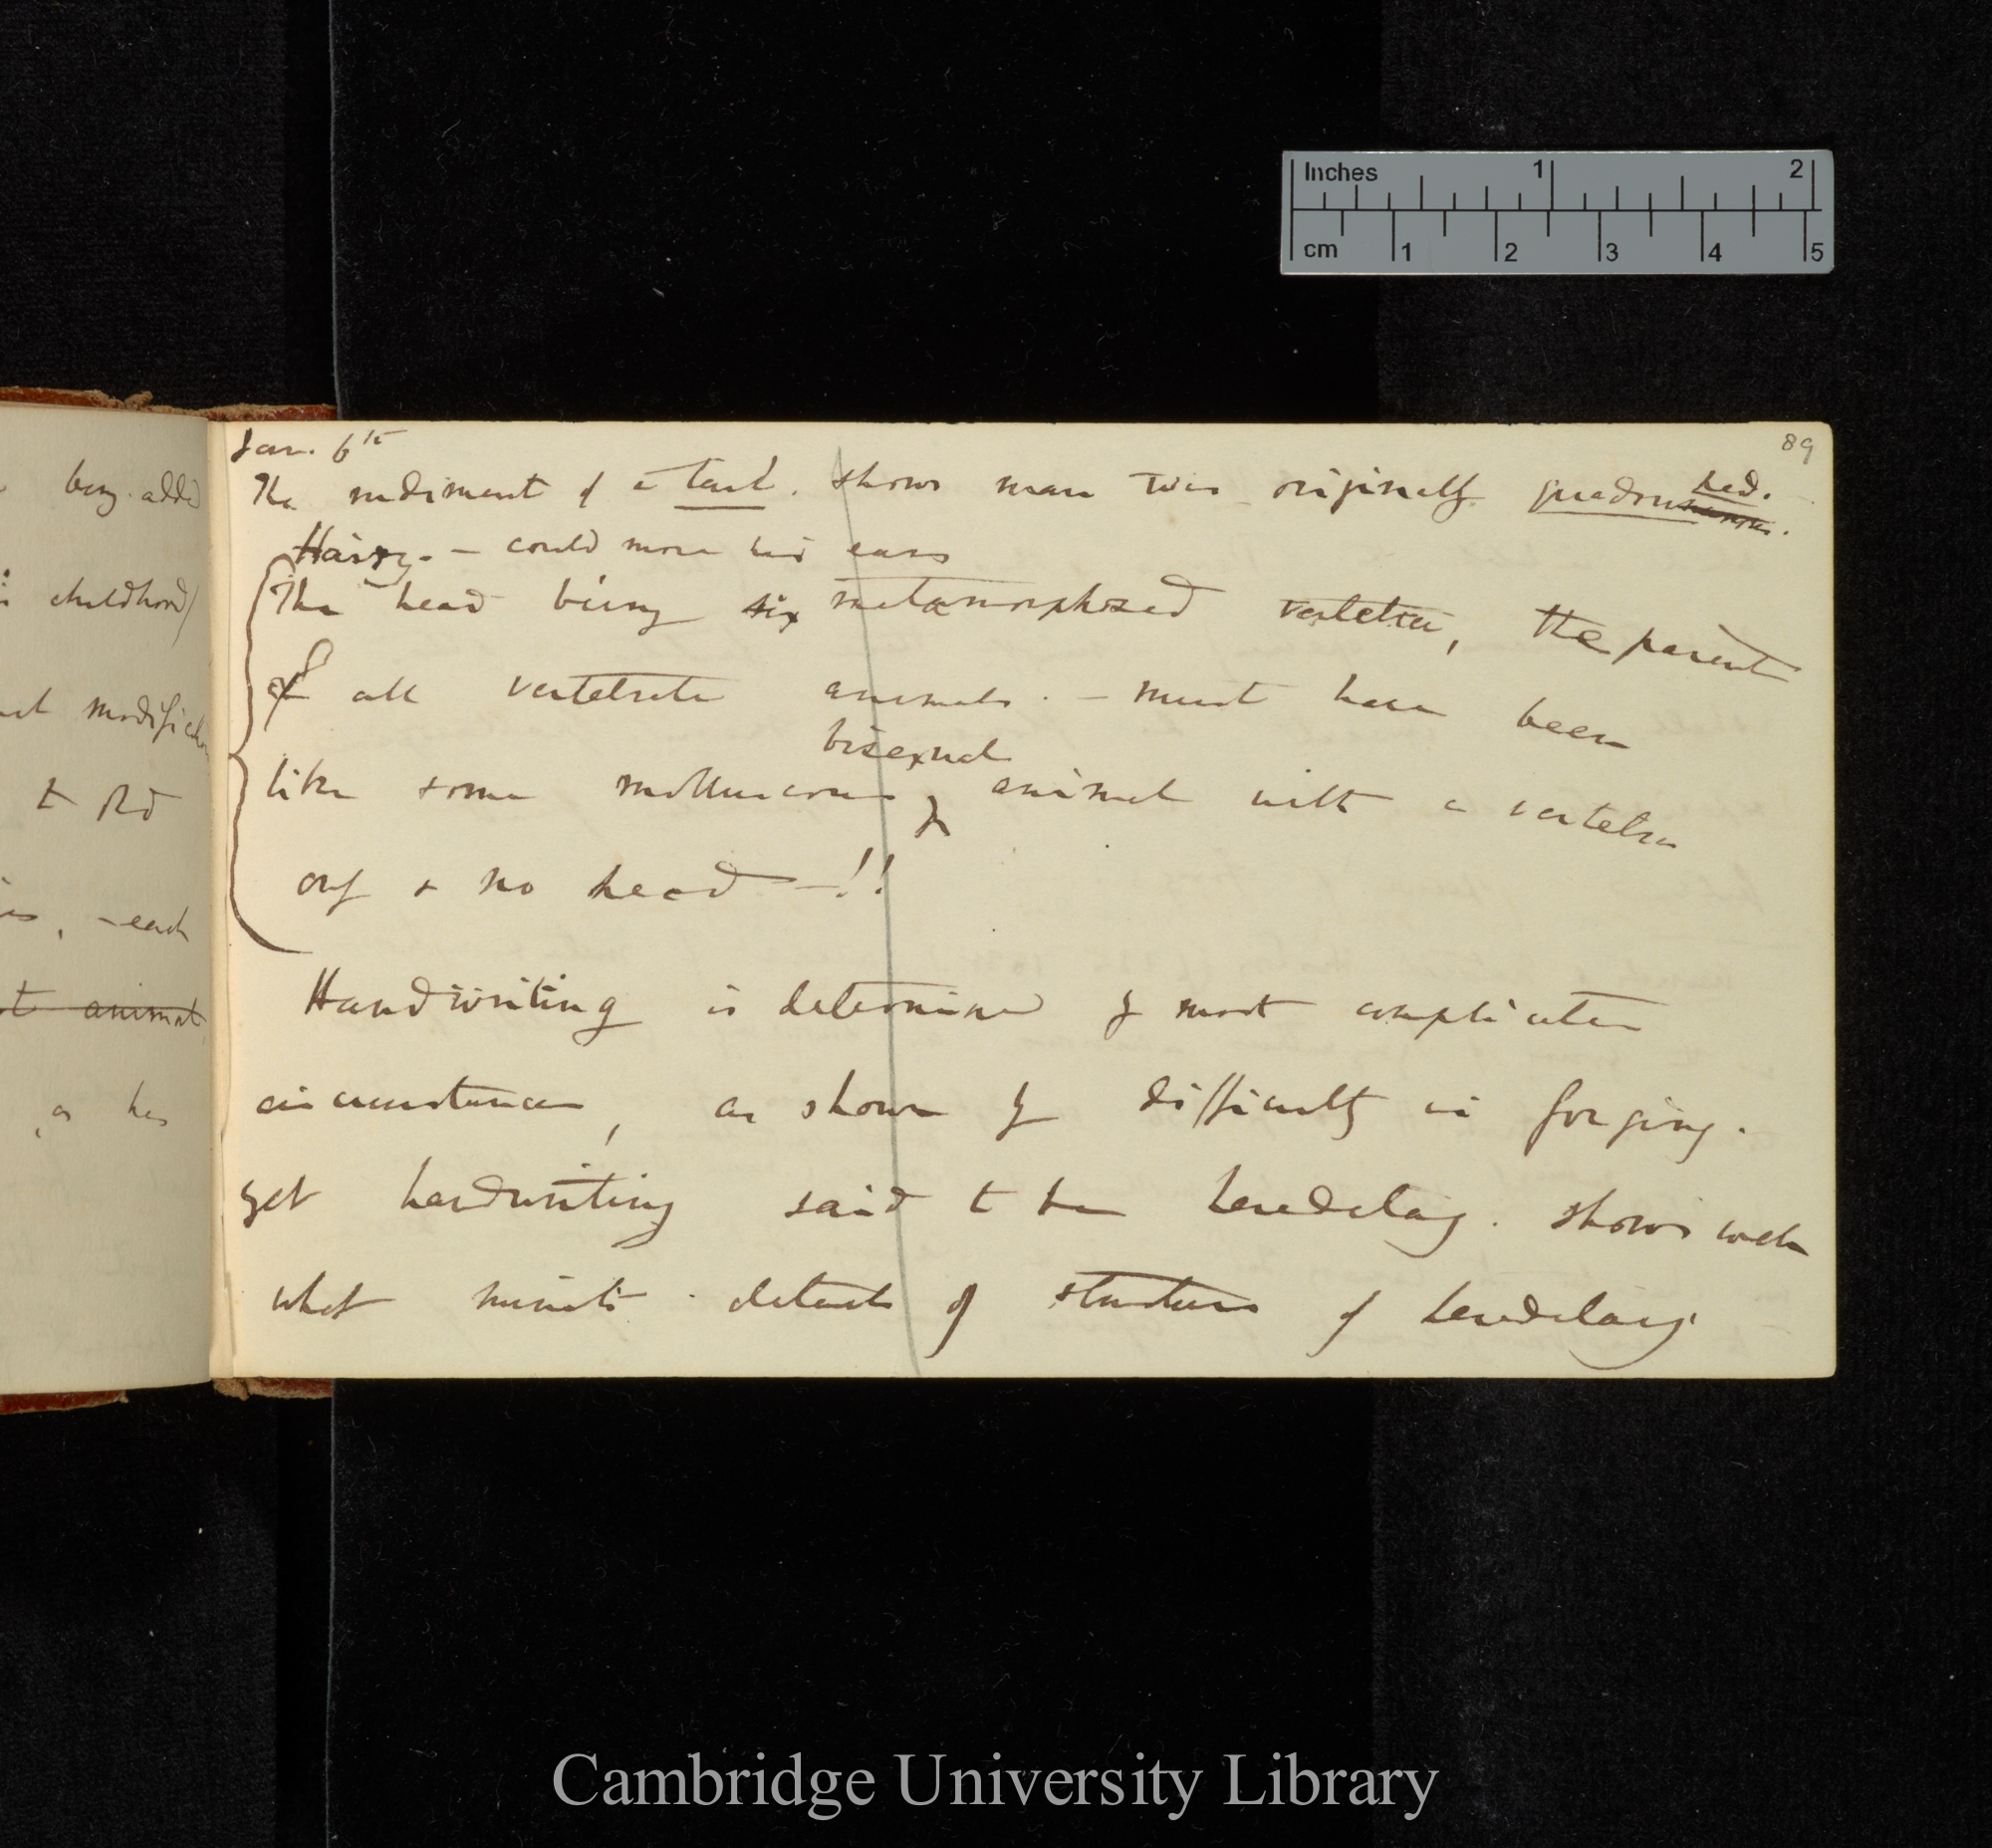 being added
childhood/
modification
to Rd
– each
animal
, as has
89
Jan. 6th
The rudiment of a tail. shows man was originally quadruped.
Hairy. – could move his ears
The head being six metamorphosed vertebræ, the parent
of all vertebrate animals. – must have been
bisexual
like some molluscous animal with a vertebra
only & no head –!!
Handwriting is determined by most complicated
circumstances, as shown by difficulty in forging.
yet handwriting said to be hereditary. shows well
what minute details of structure of hereditary
Inches 1 2
cm 1 2 3 4 5
Cambridge University Library